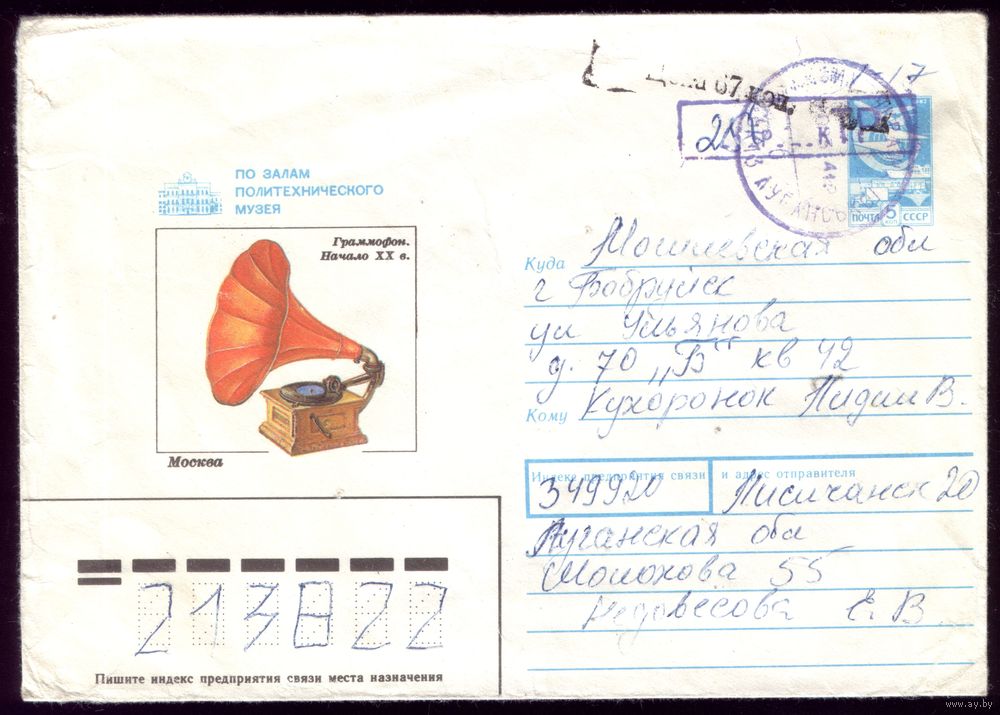 Цена 67 коп.
17
К
ПОЧТА 5 СССР
ПО ЗАЛАМ
ПОЛИТЕХНИЧЕСКОГО
МУЗЕЯ
Граммофон.
Начало XX в.
Москва
Куда Могилевская обл
г Бобруйск
ул Ульянова
д. 70 „В“ кв 42
Кому Кухоронок Лидии В.
Индекс предприятия связи и адрес отправителя
349920 Лисичанск 20
Луганская обл
Шолохова 55
Недовесова Е. В
213822
Пишите индекс предприятия связи места назначения
www.ay.by